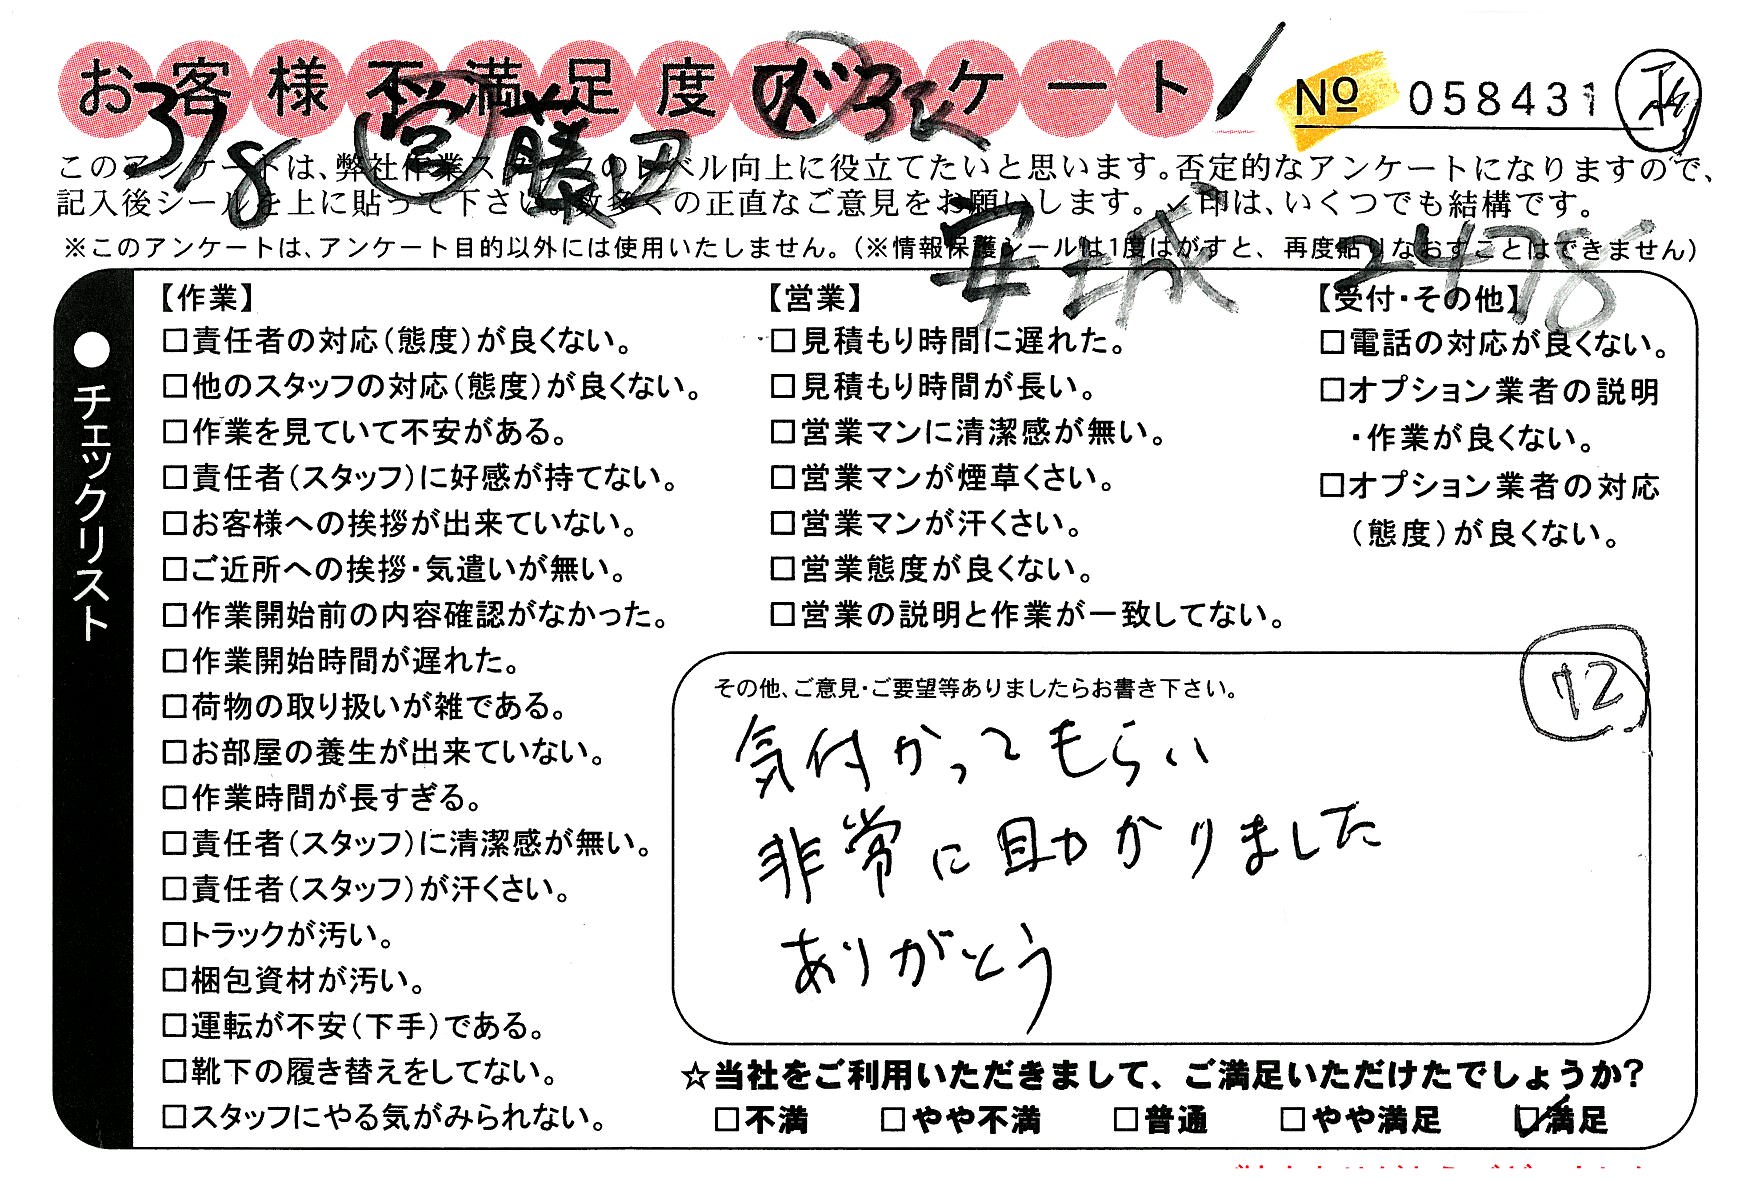 お客様不満足度アンケート
№ 058431
3/8 営 藤田
安城 2478
このアンケートは、弊社作業スタッフのレベル向上に役立てたいと思います。否定的なアンケートになりますので、
記入後シールを上に貼って下さい。数多くの正直なご意見をお願いします。✓印は、いくつでも結構です。
※このアンケートは、アンケート目的以外には使用いたしません。(※情報保護シールは1度はがすと、再度貼りなおすことはできません)
●チェックリスト
【作業】
□責任者の対応(態度)が良くない。
□他のスタッフの対応(態度)が良くない。
□作業を見ていて不安がある。
□責任者(スタッフ)に好感が持てない。
□お客様への挨拶が出来ていない。
□ご近所への挨拶・気遣いが無い。
□作業開始前の内容確認がなかった。
□作業開始時間が遅れた。
□荷物の取り扱いが雑である。
□お部屋の養生が出来ていない。
□作業時間が長すぎる。
□責任者(スタッフ)に清潔感が無い。
□責任者(スタッフ)が汗くさい。
□トラックが汚い。
□梱包資材が汚い。
□運転が不安(下手)である。
□靴下の履き替えをしてない。
□スタッフにやる気がみられない。
【営業】
□見積もり時間に遅れた。
□見積もり時間が長い。
□営業マンに清潔感が無い。
□営業マンが煙草くさい。
□営業マンが汗くさい。
□営業態度が良くない。
□営業の説明と作業が一致してない。
【受付・その他】
□電話の対応が良くない。
□オプション業者の説明
・作業が良くない。
□オプション業者の対応
(態度)が良くない。
72
その他、ご意見・ご要望等ありましたらお書き下さい。
気付かってもらい
非常に助かりました
ありがとう
☆当社をご利用いただきまして、ご満足いただけたでしょうか?
□不満 □やや不満 □普通 □やや満足 ☑満足